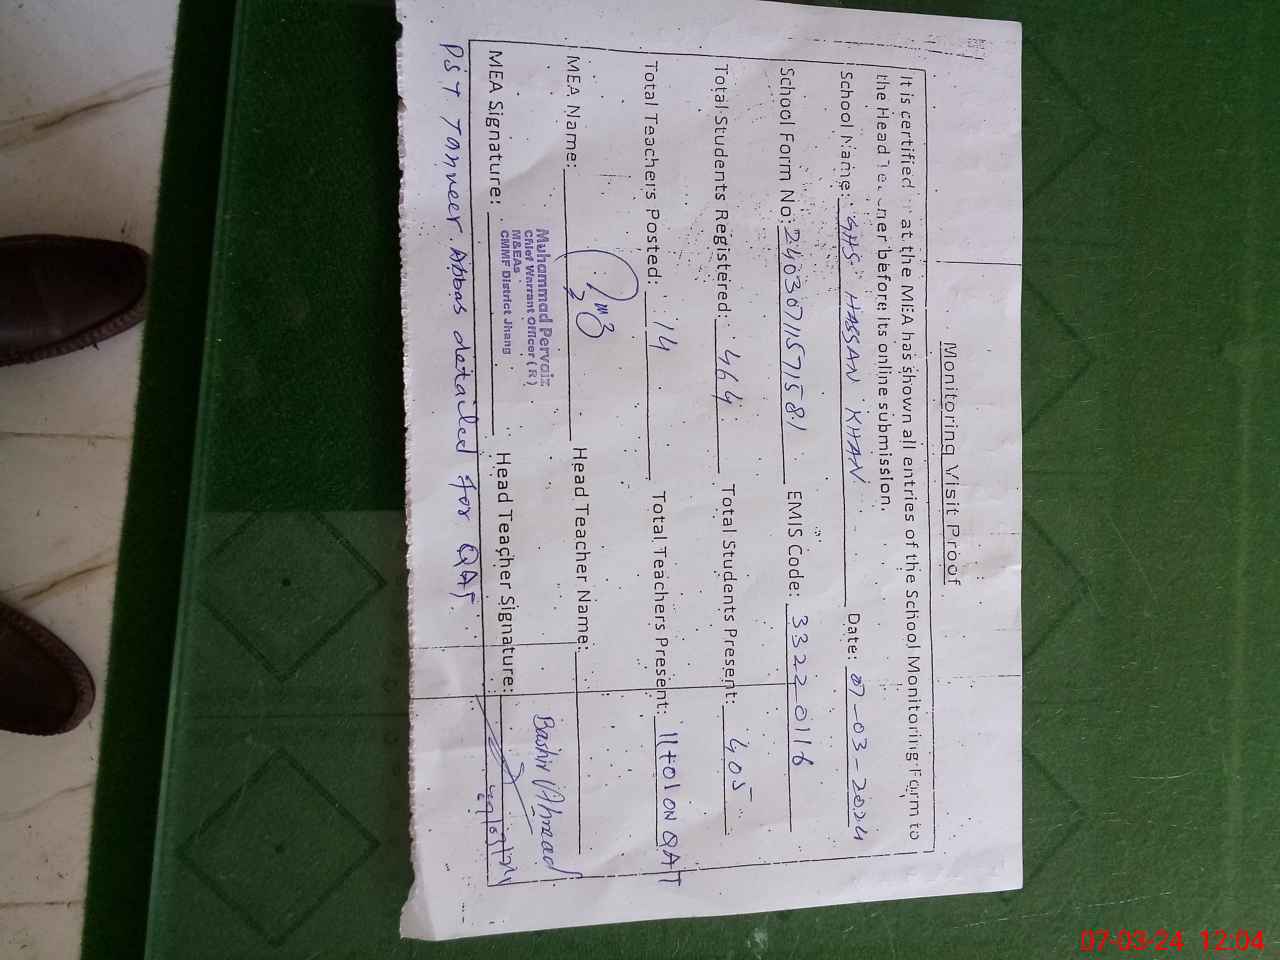 Monitoring Visit Proof
It is certified that the MEA has shown all entries of the School Monitoring Form to
the Head Teacher before its online submission.
School Name: GHS HASSAN KHAN Date: 07-03-2024
School Form No: 24030711571581 EMIS Code: 33220116
Total Students Registered: 464 Total Students Present: 405
Total Teachers Posted: 14 Total Teachers Present: 11+01 ON QAT
MEA Name: Head Teacher Name: Bashir Ahmad
Muhammad Pervaiz
Chief Warrant Officer (R)
M&EAs
CMMF District Jhang
MEA Signature: Head Teacher Signature:
PST Tanveer Abbas detailed for QAT.
07-03-24 12:04